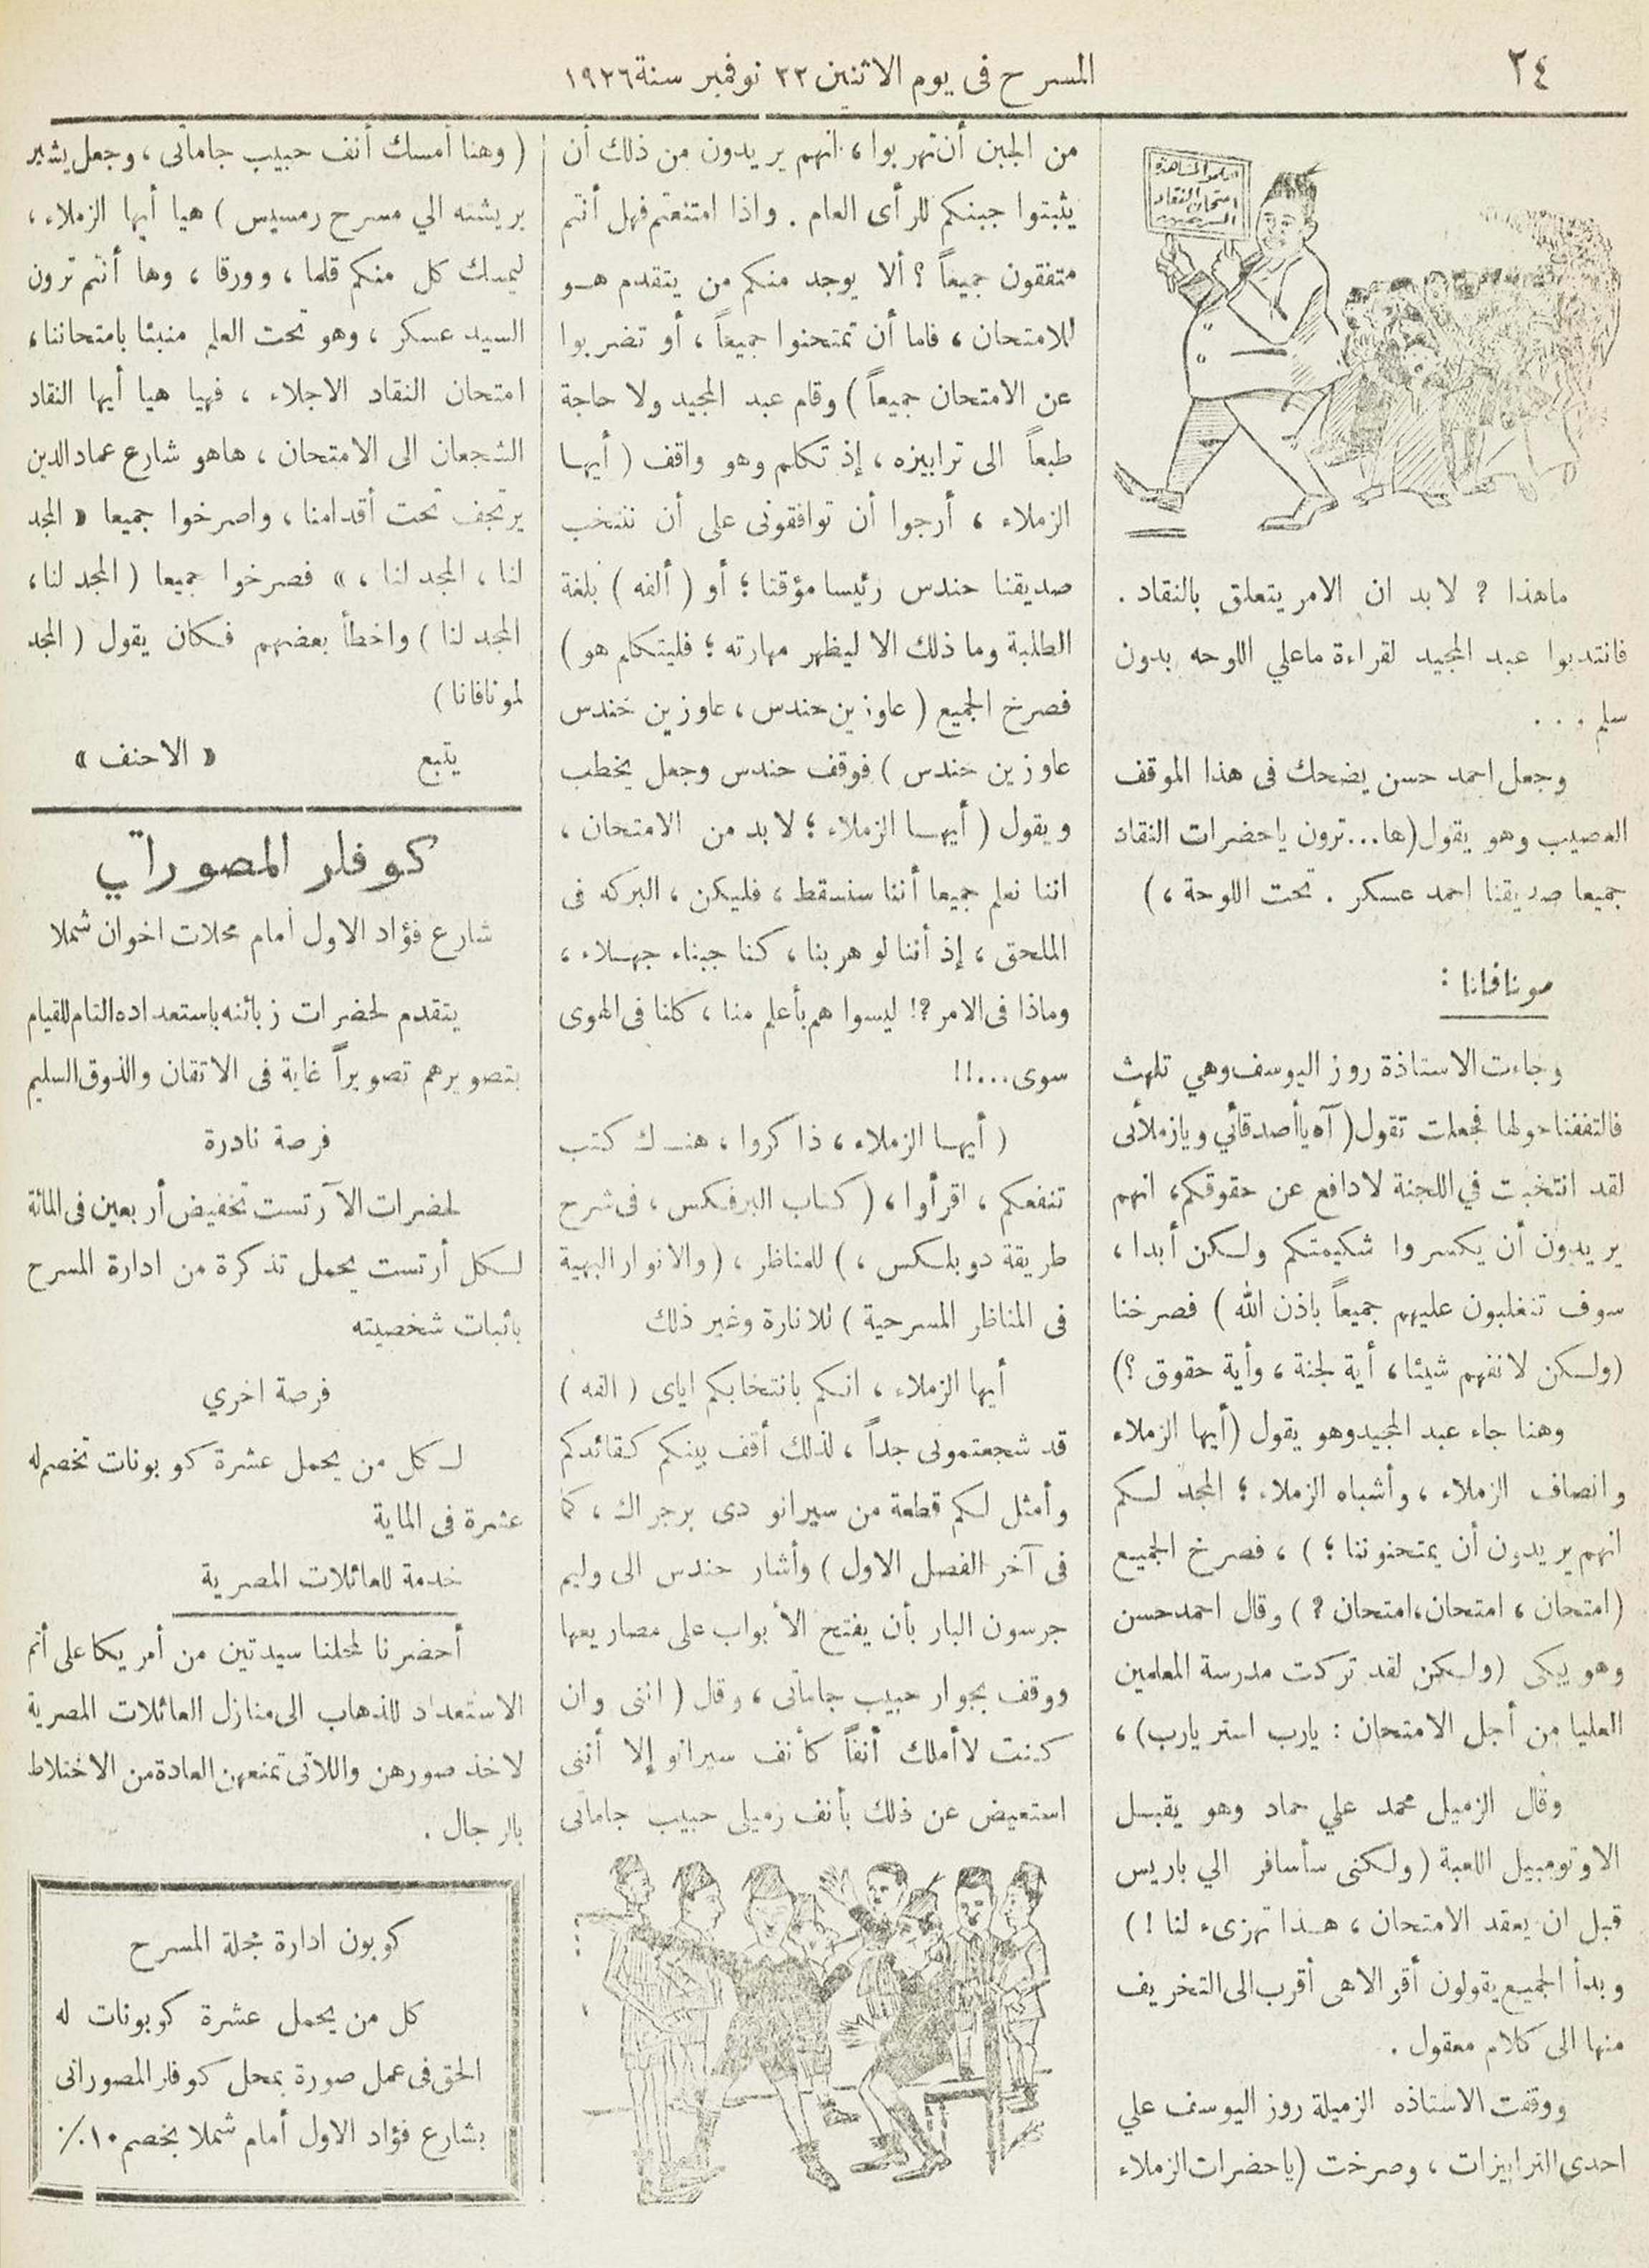 ٢٤
المسرح فى يوم الاثنين ٢٢ نوفمبر سنة ١٩٢٦
امتحان النقاد
المسرحيين
ماهذا ? لابد ان الامر يتعلق بالنقاد .
فانتدبوا عبد المجيد لقراءة ماعلي اللوحه بدون
سلم . . .
وجعل احمد حسن يضحك فى هذا الموقف
العصيب وهو يقول (ها...ترون ياحضرات النقاد
جميعا صديقنا احمد عسكر . تحت اللوحة ،)
مونافانا :
وجاءت الاستاذة روز اليوسف وهي تلهث
فالتففنا حولها فجعلت تقول( آه ياأصدقائي ويازملائى
لقد انتخبت في اللجنة لادافع عن حقوقكم، انهم
يريدون أن يكسروا شكيمتكم ولكن أبدا ،
سوف تتغلبون عليهم جميعاً باذن الله ) فصرخنا
(ولكن لانفهم شيئا، أية لجنة ، وأية حقوق ؟)
وهنا جاء عبد المجيد وهو يقول (أيها الزملاء
وانصاف الزملاء ، وأشباه الزملاء ؛ المجد لكم
انهم يريدون أن يمتحنوننا ؛ ) ، فصرخ الجميع
(امتحان ، امتحان،امتحان ? ) وقال احمد حسن
وهو يبكى (ولكن لقد تركت مدرسة المعلمين
العليا من أجل الامتحان : يارب استر يارب) ،
وقال الزميل محمد علي حماد وهو يقبل
الاوتومبيل اللعبة (ولكنى سأسافر الي باريس
قبل ان يعقد الامتحان ، هذا تهزىء لنا ! )
وبدأ الجميع يقولون أقوالاهى أقرب الى التخريف
منها الى كلام معقول .
ووقفت الاستاذه الزميلة روز اليوسف علي
احدى الترابيزات ، وصرخت (ياحضرات الزملاء
من الجبن أن تهربوا ، انهم يريدون من ذلك أن
يثبتوا جبنكم للرأى العام . واذا امتنعتم فهل أنتم
متفقون جميعاً ؟ ألا يوجد منكم من يتقدم هو
للامتحان ، فاما أن تمتحنوا جميعاً ، أو تضربوا
عن الامتحان جميعاً ) وقام عبد المجيد ولا حاجة
طبعاً الى ترابيزه ، إذ تكلم وهو واقف ( أيها
الزملاء ، أرجوا أن توافقونى على أن ننتخب
صديقنا حندس رئيسا مؤقتا ؛ أو ( ألفه ) بلغة
الطلبة وما ذلك الا ليظهر مهارته ؛ فليتكلم هو )
فصرخ الجميع ( عاوزين حندس ، عاوزين حندس
عاوزين حندس ) فوقف حندس وجعل يخطب
ويقول ( أيها الزملاء ؛ لابد من الامتحان ،
اننا نعلم جميعا أننا سنسقط ، فليكن ، البركه فى
الملحق ، إذ أننا لو هربنا ، كنا جبناء جهلاء ،
وماذا فى الامر ?! ليسوا هم بأعلم منا ، كلنا فى الهوى
سوى...!!
( أيها الزملاء ، ذاكروا ، هناك كتب
تنفعكم ، اقرأوا ، ( كتاب البرفكس ، فى شرح
طريقة دوبلكس ، ) للمناظر ، ( والانوار البهية
فى المناظر المسرحية ) للانارة وغير ذلك
أيها الزملاء ، انكم بانتخابكم اياى ( الفه )
قد شجعتمونى جداً ، لذلك أقف بينكم كقائدكم
وأمثل لكم قطعة من سيرانو دى برجراك ، كما
فى آخر الفصل الاول ) وأشار حندس الى وليم
جرسون البار بأن يفتح الأبواب على مصاريعها
ووقف بجوار حبيب جاماتى ، وقال ( اننى وان
كنت لاأملك أنفاً كأنف سيرانو إلا أننى
استعيض عن ذلك بأنف زميلى حبيب جاماتى
( وهنا أمسك أنف حبيب جاماتى ، وجعل يشير
بريشته الي مسرح رمسيس ) هيا أيها الزملاء ،
ليمسك كل منكم قلما ، وورقا ، وها أنتم ترون
السيد عسكر ، وهو تحت العلم منبئا بامتحاننا ،
امتحان النقاد الاجلاء ، فهيا هيا أيها النقاد
الشجعان الى الامتحان ، هاهو شارع عماد الدين
يرتجف تحت أقدامنا ، واصرخوا جميعا « المجد
لنا ، المجد لنا ، » فصرخوا جميعا ( المجد لنا ،
المجد لنا ) واخطأ بعضهم فكان يقول ( المجد
لمونافانا )
يتبع « الاحنف »
كوفلر المصوراتي
شارع فؤاد الاول أمام محلات اخوان شملا
يتقدم لحضرات زبائنه باستعداده التام للقيام
بتصويرهم تصويراً غاية فى الاتقان والذوق السليم
فرصة نادرة
لحضرات الآرتست تخفيض أربعين فى المائة
لكل أرتست يحمل تذكرة من ادارة المسرح
باثبات شخصيته
فرصة اخري
لـكل من يحمل عشرة كوبونات تخصم له
عشرة فى الماية
خدمة للعائلات المصرية
أحضرنا لمحلنا سيدتين من أمريكا على أتم
الاستعداد للذهاب الى منازل العائلات المصرية
لاخذ صورهن واللاتى تمنعهن العادة من الاختلاط
بالرجال .
كوبون ادارة مجلة المسرح
كل من يحمل عشرة كوبونات له
الحق فى عمل صورة بمحل كوفلر المصوراتى
بشارع فؤاد الاول أمام شملا بخصم ١٠٪